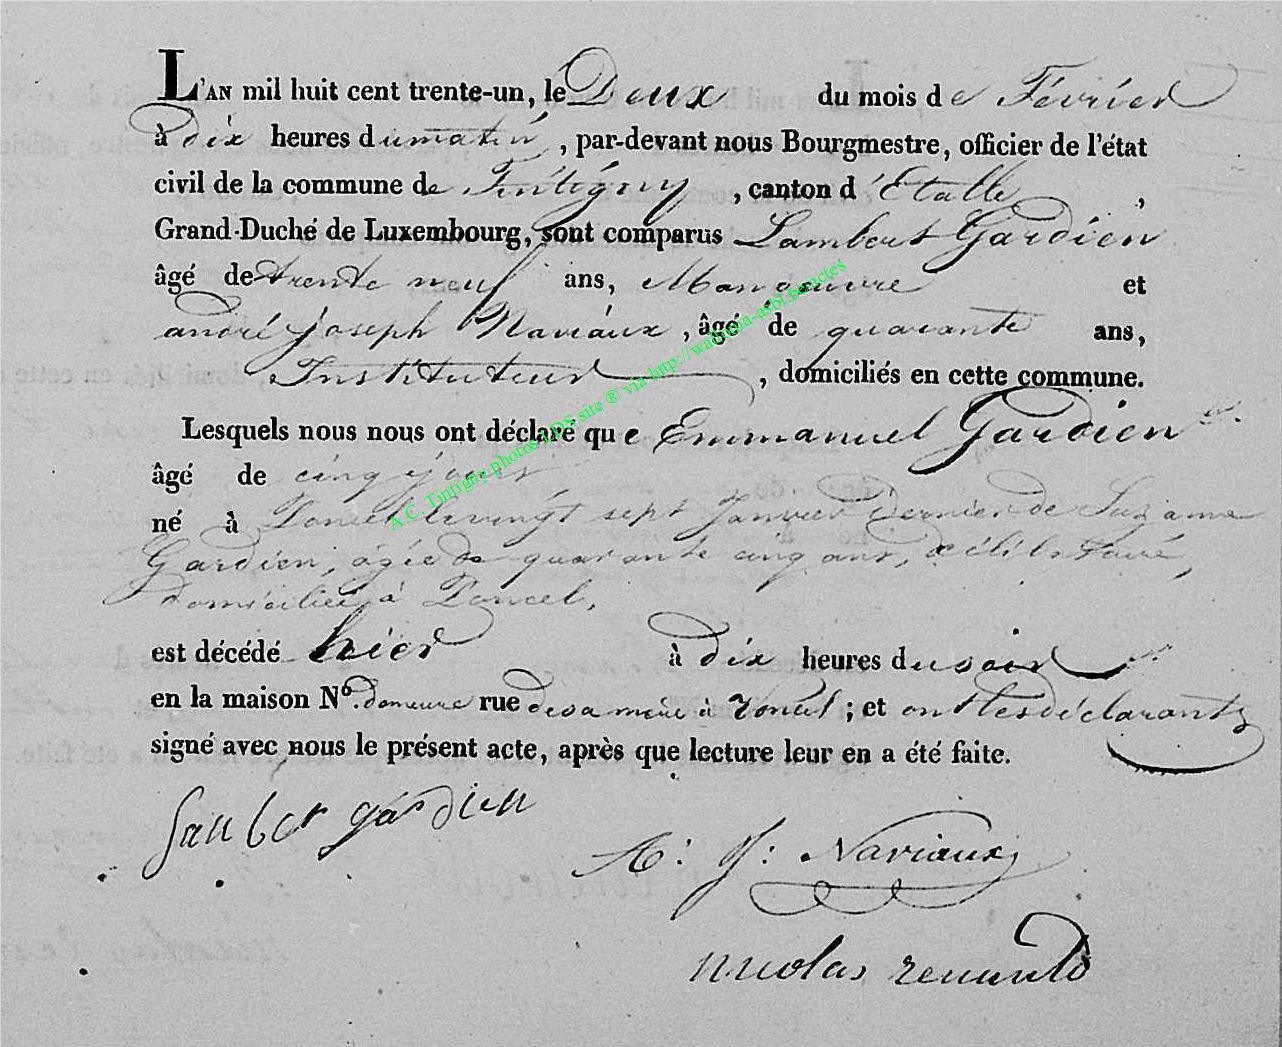 L'AN mil huit cent trente-un, le Deux du mois de Février
à dix heures du matin, par-devant nous Bourgmestre, officier de l'état
civil de la commune de Tintigny, canton d'Etalle,
Grand-Duché de Luxembourg, sont comparus Lambert Gardien
âgé de trente neuf ans, Manoeuvre et
andré joseph Naviaux, âgé de quarante ans,
Instituteur, domiciliés en cette commune.
Lesquels nous nous ont déclaré que Emmanuel Gardien
âgé de cinq jours
né à Poncel le vingt sept Janvier dernier de Suzanne
Gardien, agée de quarante cinq ans, célibataire,
domiciliée à Poncel,
est décédé hier à dix heures du soir
en la maison No. demeure rue de sa mère à Poncel; et ont les déclarants
signé avec nous le présent acte, après que lecture leur en a été faite.
lambert gardien
A. J. Naviaux
nicolas renauld
A.C. Tintigny photos LDS site ® via http://wallonia-asbl.be/actes